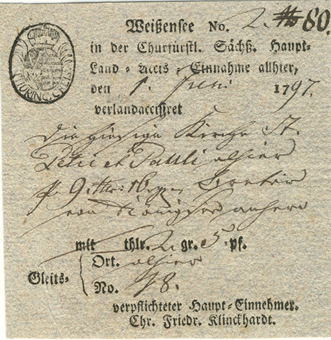 Weißensee No. 2. 80.
in der Churfürstl. Sächß. Haupt-
Land-Accis-Einnahme allhier,
den 1. Juni 1797.
verlandaccisiret
die hiesige Kirche St.
Petri et Pauli alhier
p 9. thlr. 16 gr.
von
mit thlr. 2. gr. 5. pf.
Ort. alhier
Gleits-
No. 98.
verpflichteter Haupt-Einnehmer.
Chr. Friedr. Klinckhardt.